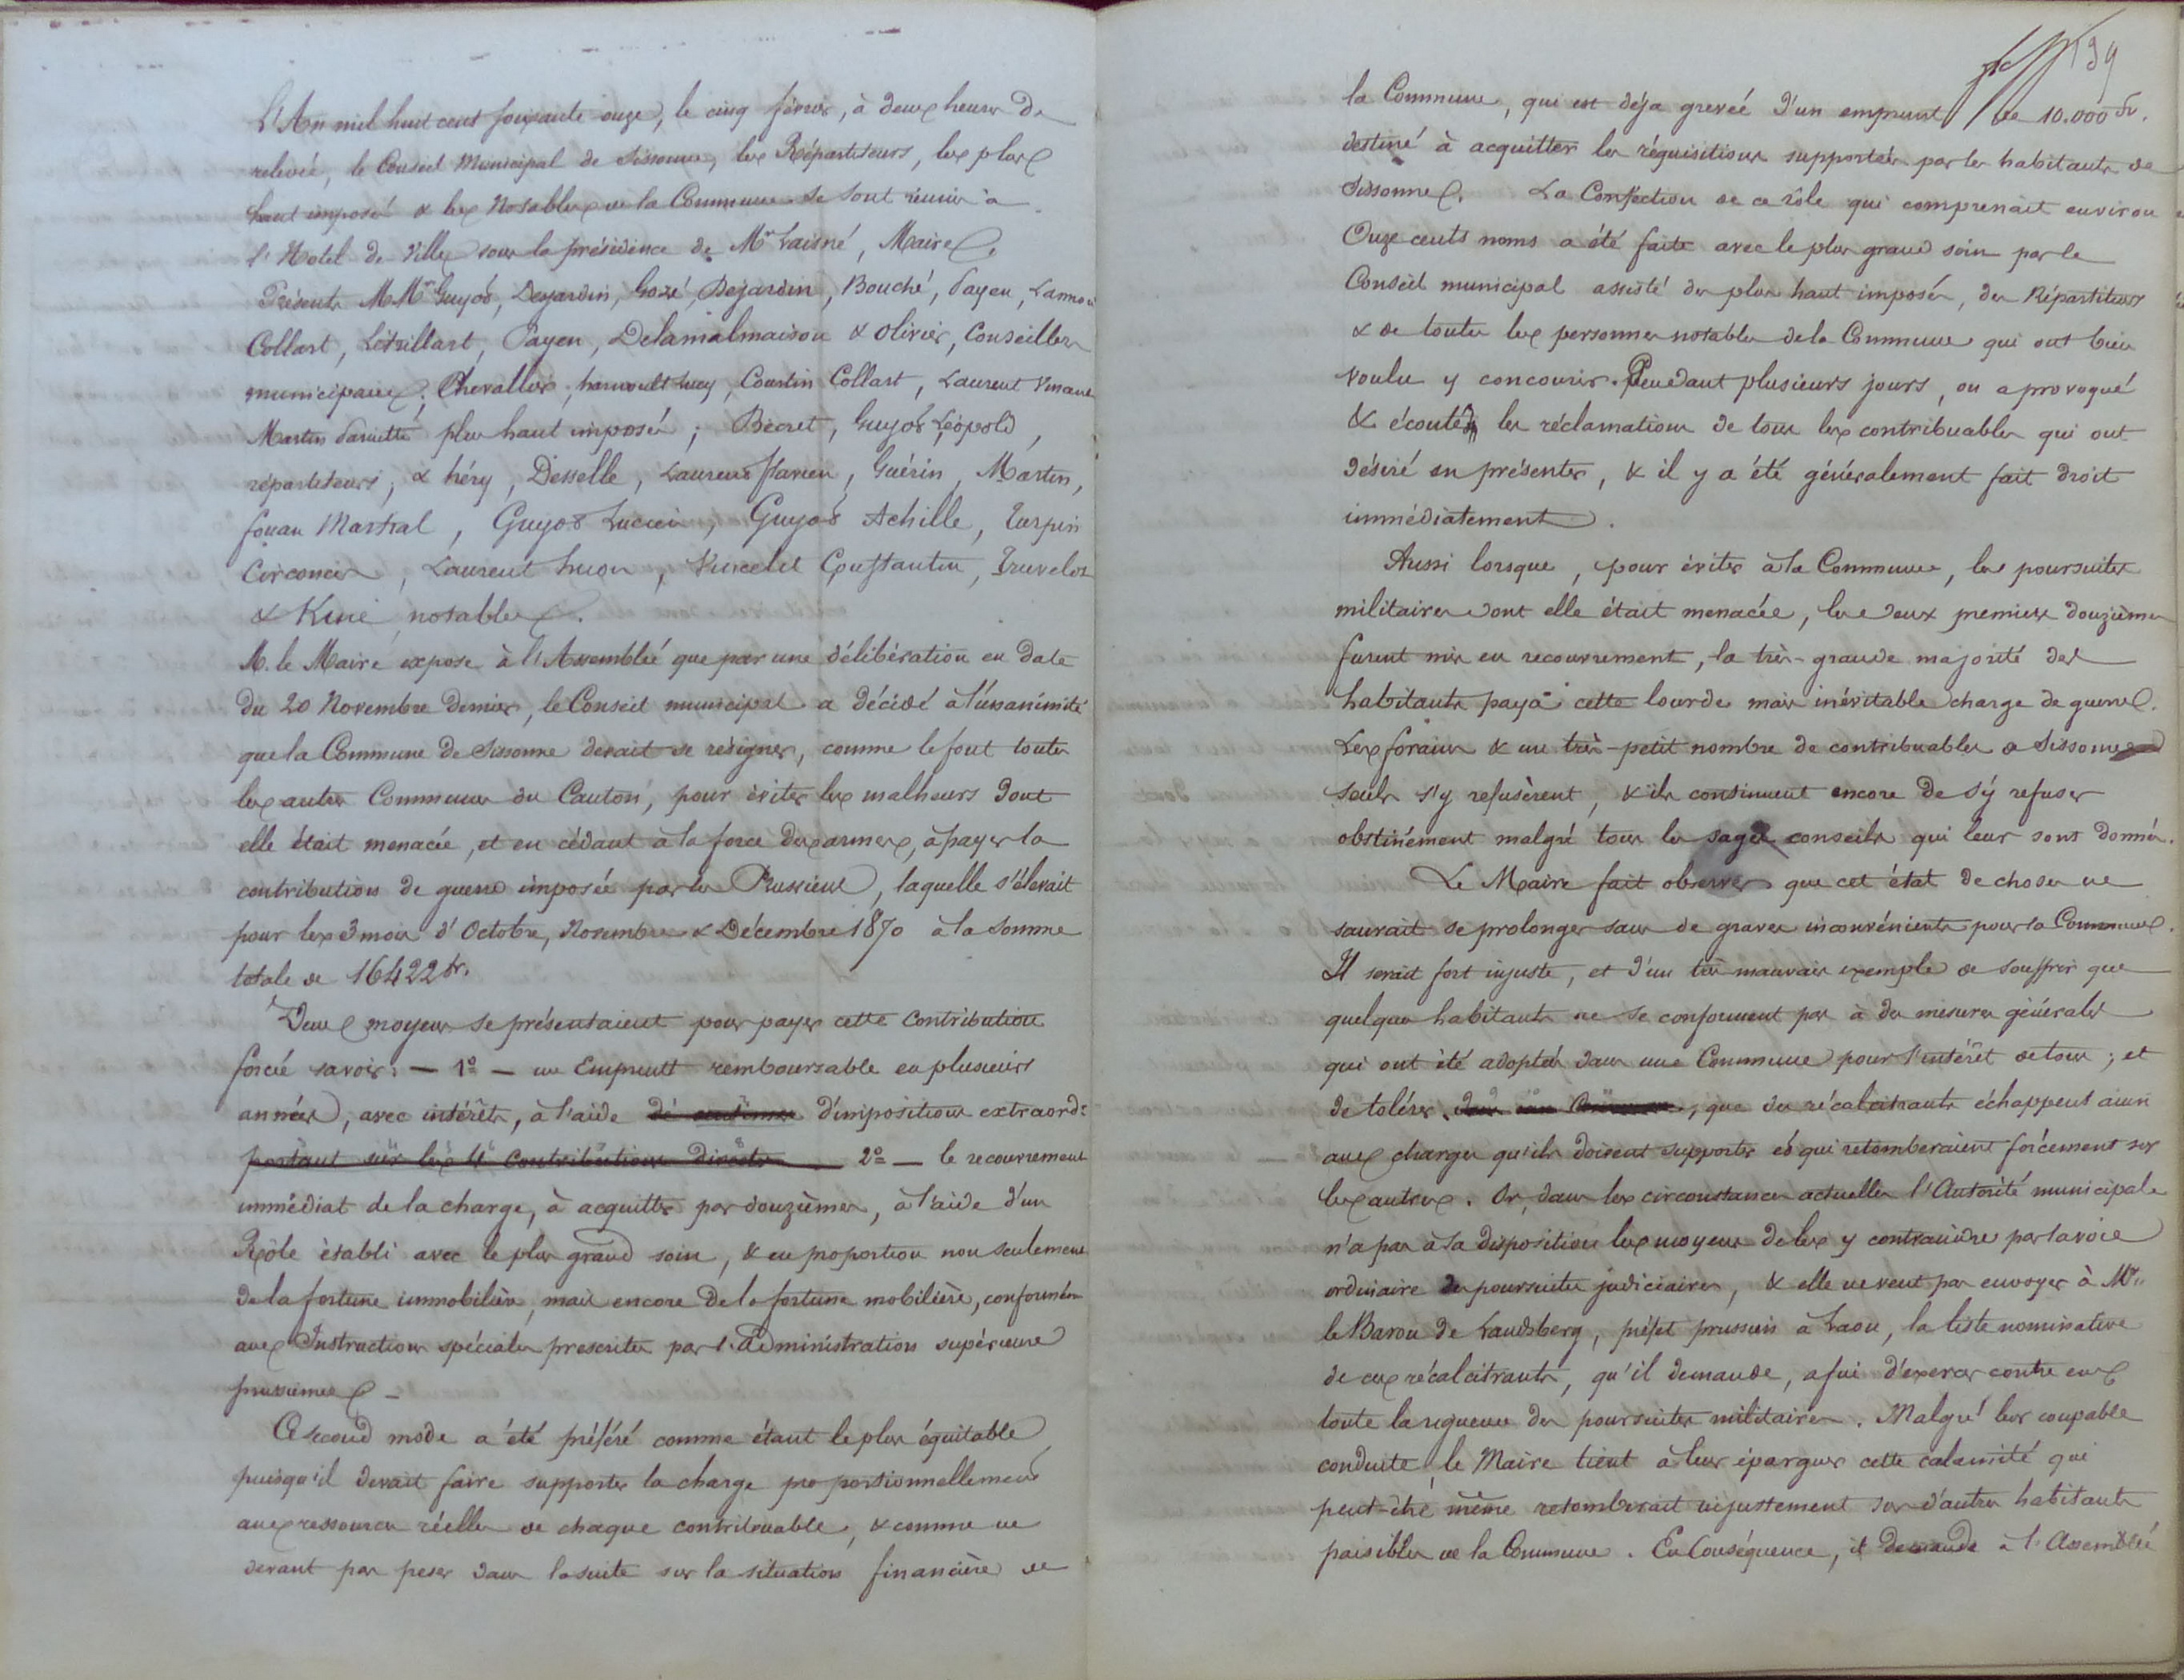 L'An mil huit cent soixante-onze, le cinq février, à deux heures de
relevée, le Conseil Municipal de Sissonne, les Répartiteurs, les plus
haut imposés & les Notables de la Commune se sont réunis à
l'Hotel de Ville sous la présidence de Mr Laisné, Maire.
Présents MMrs Guyot, Desjardin, Gozé, Dejardin, Bouché, Payen,
Collart, Létrillart, Payen, Delamalmaison & Olivier, Conseillers
municipaux; Chevallier, Courtin Collart, Laurent
Martin plus haut imposés; Bécret, Guyot Léopold,
répartiteurs, & héry, Desselle, Laurent Flavien, Guérin, Martin,
Martial, Guyot Lucien, Guyot Achille, Turpin
Laurent Constantin,
& notables.
M. le Maire expose à l'Assemblée que par une délibération en date
du 20 Novembre dernier, le Conseil municipal a décidé à l'unanimité
que la Commune de Sissonne devait se résigner, comme le font toutes
les autres Communes du Canton, pour éviter les malheurs dont
elle était menacée, et en cédant à la force des armes, à payer la
contribution de guerre imposée par les Prussiens, laquelle s'élevait
pour les 3 mois d'Octobre, Novembre & Décembre 1870 à la somme
totale de 16422 fr.
Deux moyens se présentaient pour payer cette contribution
forcée savoir: — 1º — un Emprunt remboursable en plusieurs
années, avec intérêts, à l'aide de centimes d'impositions extraord.
portant sur les 4 contributions directes 2º — le recouvrement
immédiat de la charge, à acquitter par douzièmes, à l'aide d'un
Rôle établi avec le plus grand soin, & en proportion non seulement
de la fortune immobilière, mais encore de la fortune mobilière, conformémt
aux Instructions spéciales prescrites par l'administration supérieure
prussienne —
Ce second mode a été préféré comme étant le plus équitable
puisqu'il devait faire supporter la charge proportionnellement
aux ressources réelles de chaque contribuable, & comme ne
devant pas peser dans la suite sur la situation financière de
39
la Commune, qui est déja grevée d'un emprunt de 10.000 fr.
destiné à acquitter les réquisitions supportées par les habitants de
Sissonne. La Confection de ce rôle qui comprenait environ
Onze cents noms a été faite avec le plus grand soin par le
Conseil municipal assisté des plus haut imposés, des Répartiteurs
& de toutes les personnes notables de la Commune qui ont bien
voulu y concourir. Pendant plusieurs jours, on a provoqué
& écouté les réclamations de tous les contribuables qui ont
désiré en présenter, & il y a été généralement fait droit
immédiatement.
Aussi lorsque, pour éviter à la Commune, les poursuites
militaires dont elle était menacée, les deux premiers douzièmes
furent mis en recouvrement, la très-grande majorité des
habitants paya cette lourde mais inévitable charge de guerre.
Les forains & un très-petit nombre de contribuables à Sissonne
seuls s'y refusèrent, & ils continuent encore de s'y refuser
obstinément malgré tous les sages conseils qui leur sont donnés.
Le Maire fait observer que cet état de choses ne
saurait se prolonger sans de graves inconvénients pour la Commune.
Il serait fort injuste, et d'un très mauvais exemple de souffrir que
quelques habitants ne se conforment pas à des mesures générales
qui ont été adoptées dans une Commune pour l'intérêt de tous; et
de tolérer dans une Commune, que des récalcitrants échappent ainsi
aux charges qu'ils doivent supporter et qui retomberaient forcément sur
les autres. Or, dans les circonstances actuelles l'Autorité municipale
n'a pas à sa disposition les moyens de les y contraindre par la voie
ordinaire de poursuites judiciaires, & elle ne veut pas envoyer à Mr
le Baron de Landsberg, préfet prussien à Laon, la liste nominative
de ces récalcitrants, qu'il demande, afin d'exercer contre eux
toute la rigueur des poursuites militaires. Malgré leur coupable
conduite, le Maire tient à leur épargner cette calamité qui
peut-être même retomberait injustement sur d'autres habitants
paisibles de la Commune. En Conséquence, il demande à l'Assemblée